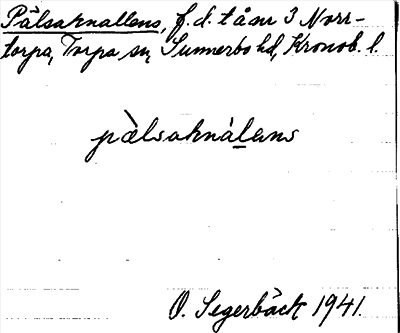 Pålsaknallens, f.d. t å nr 3 Norr-
torpa, Torpa sn, Sunnerbo hd, Kronob. l.
pàlsaknàlens
O. Segerbäck 1941.